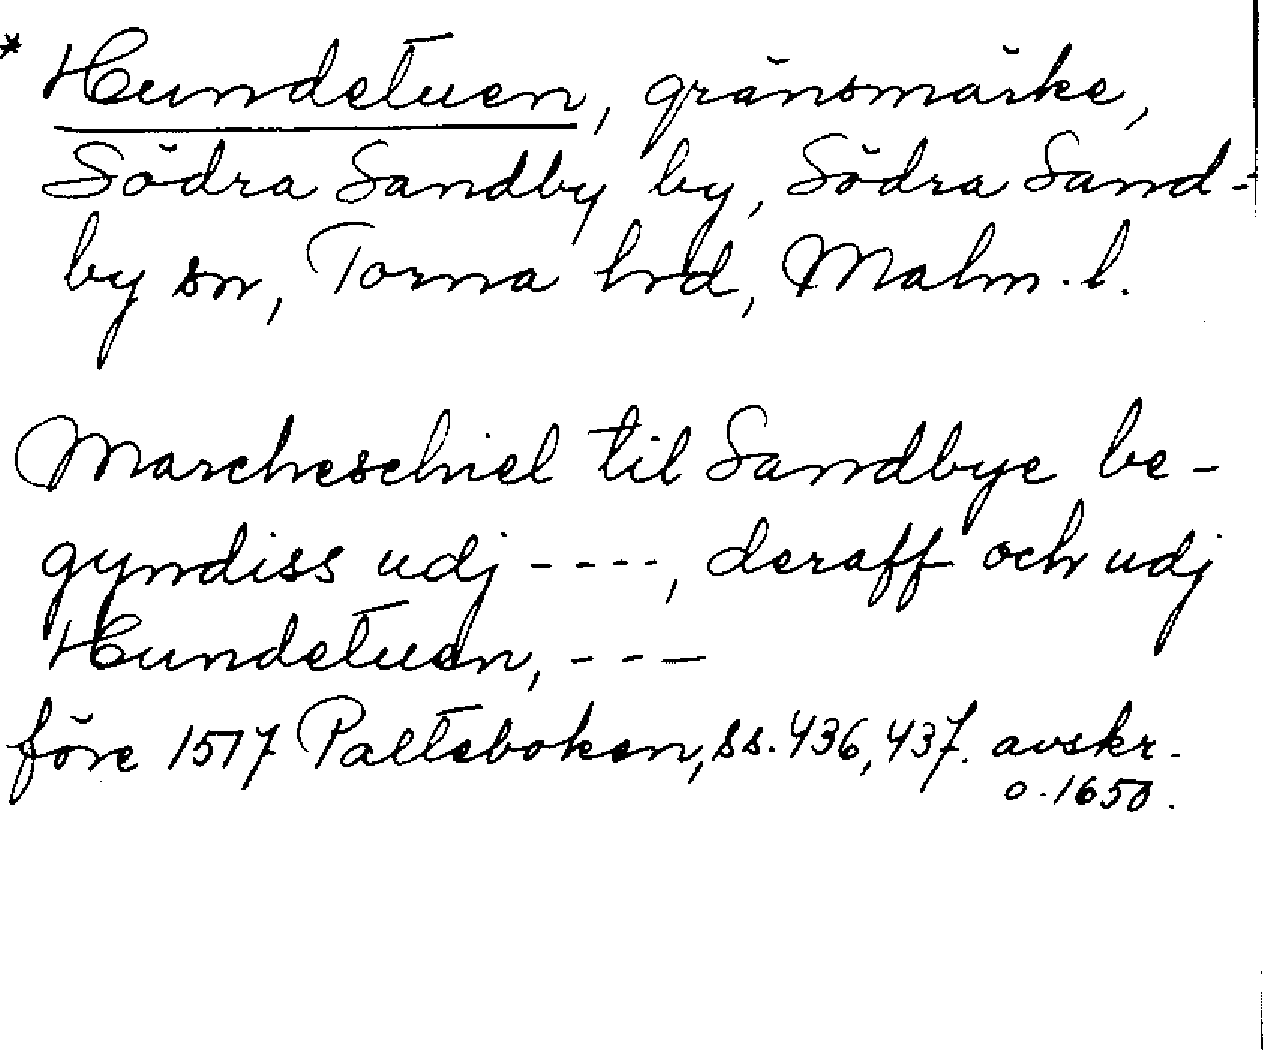 * Hundetuen, gränsmärke,
Södra Sandby by, Södra Sand-
by sn, Torna hrd, Malm. l.
Marcheschiel til Sandbye be-
gyndiss udj ----, deraff och udj
Hundetuen, ---
före 1517 Palteboken, ss. 436, 437. avskr.
o. 1650.